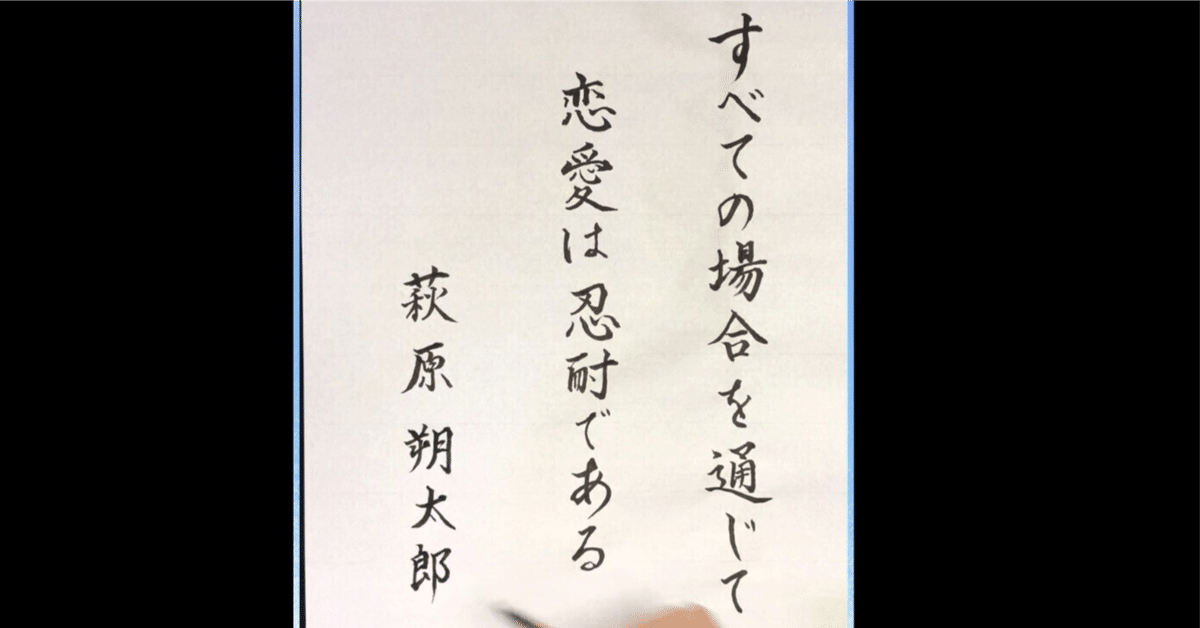 すべての場合を通じて
恋愛は忍耐である
萩原 朔太郎